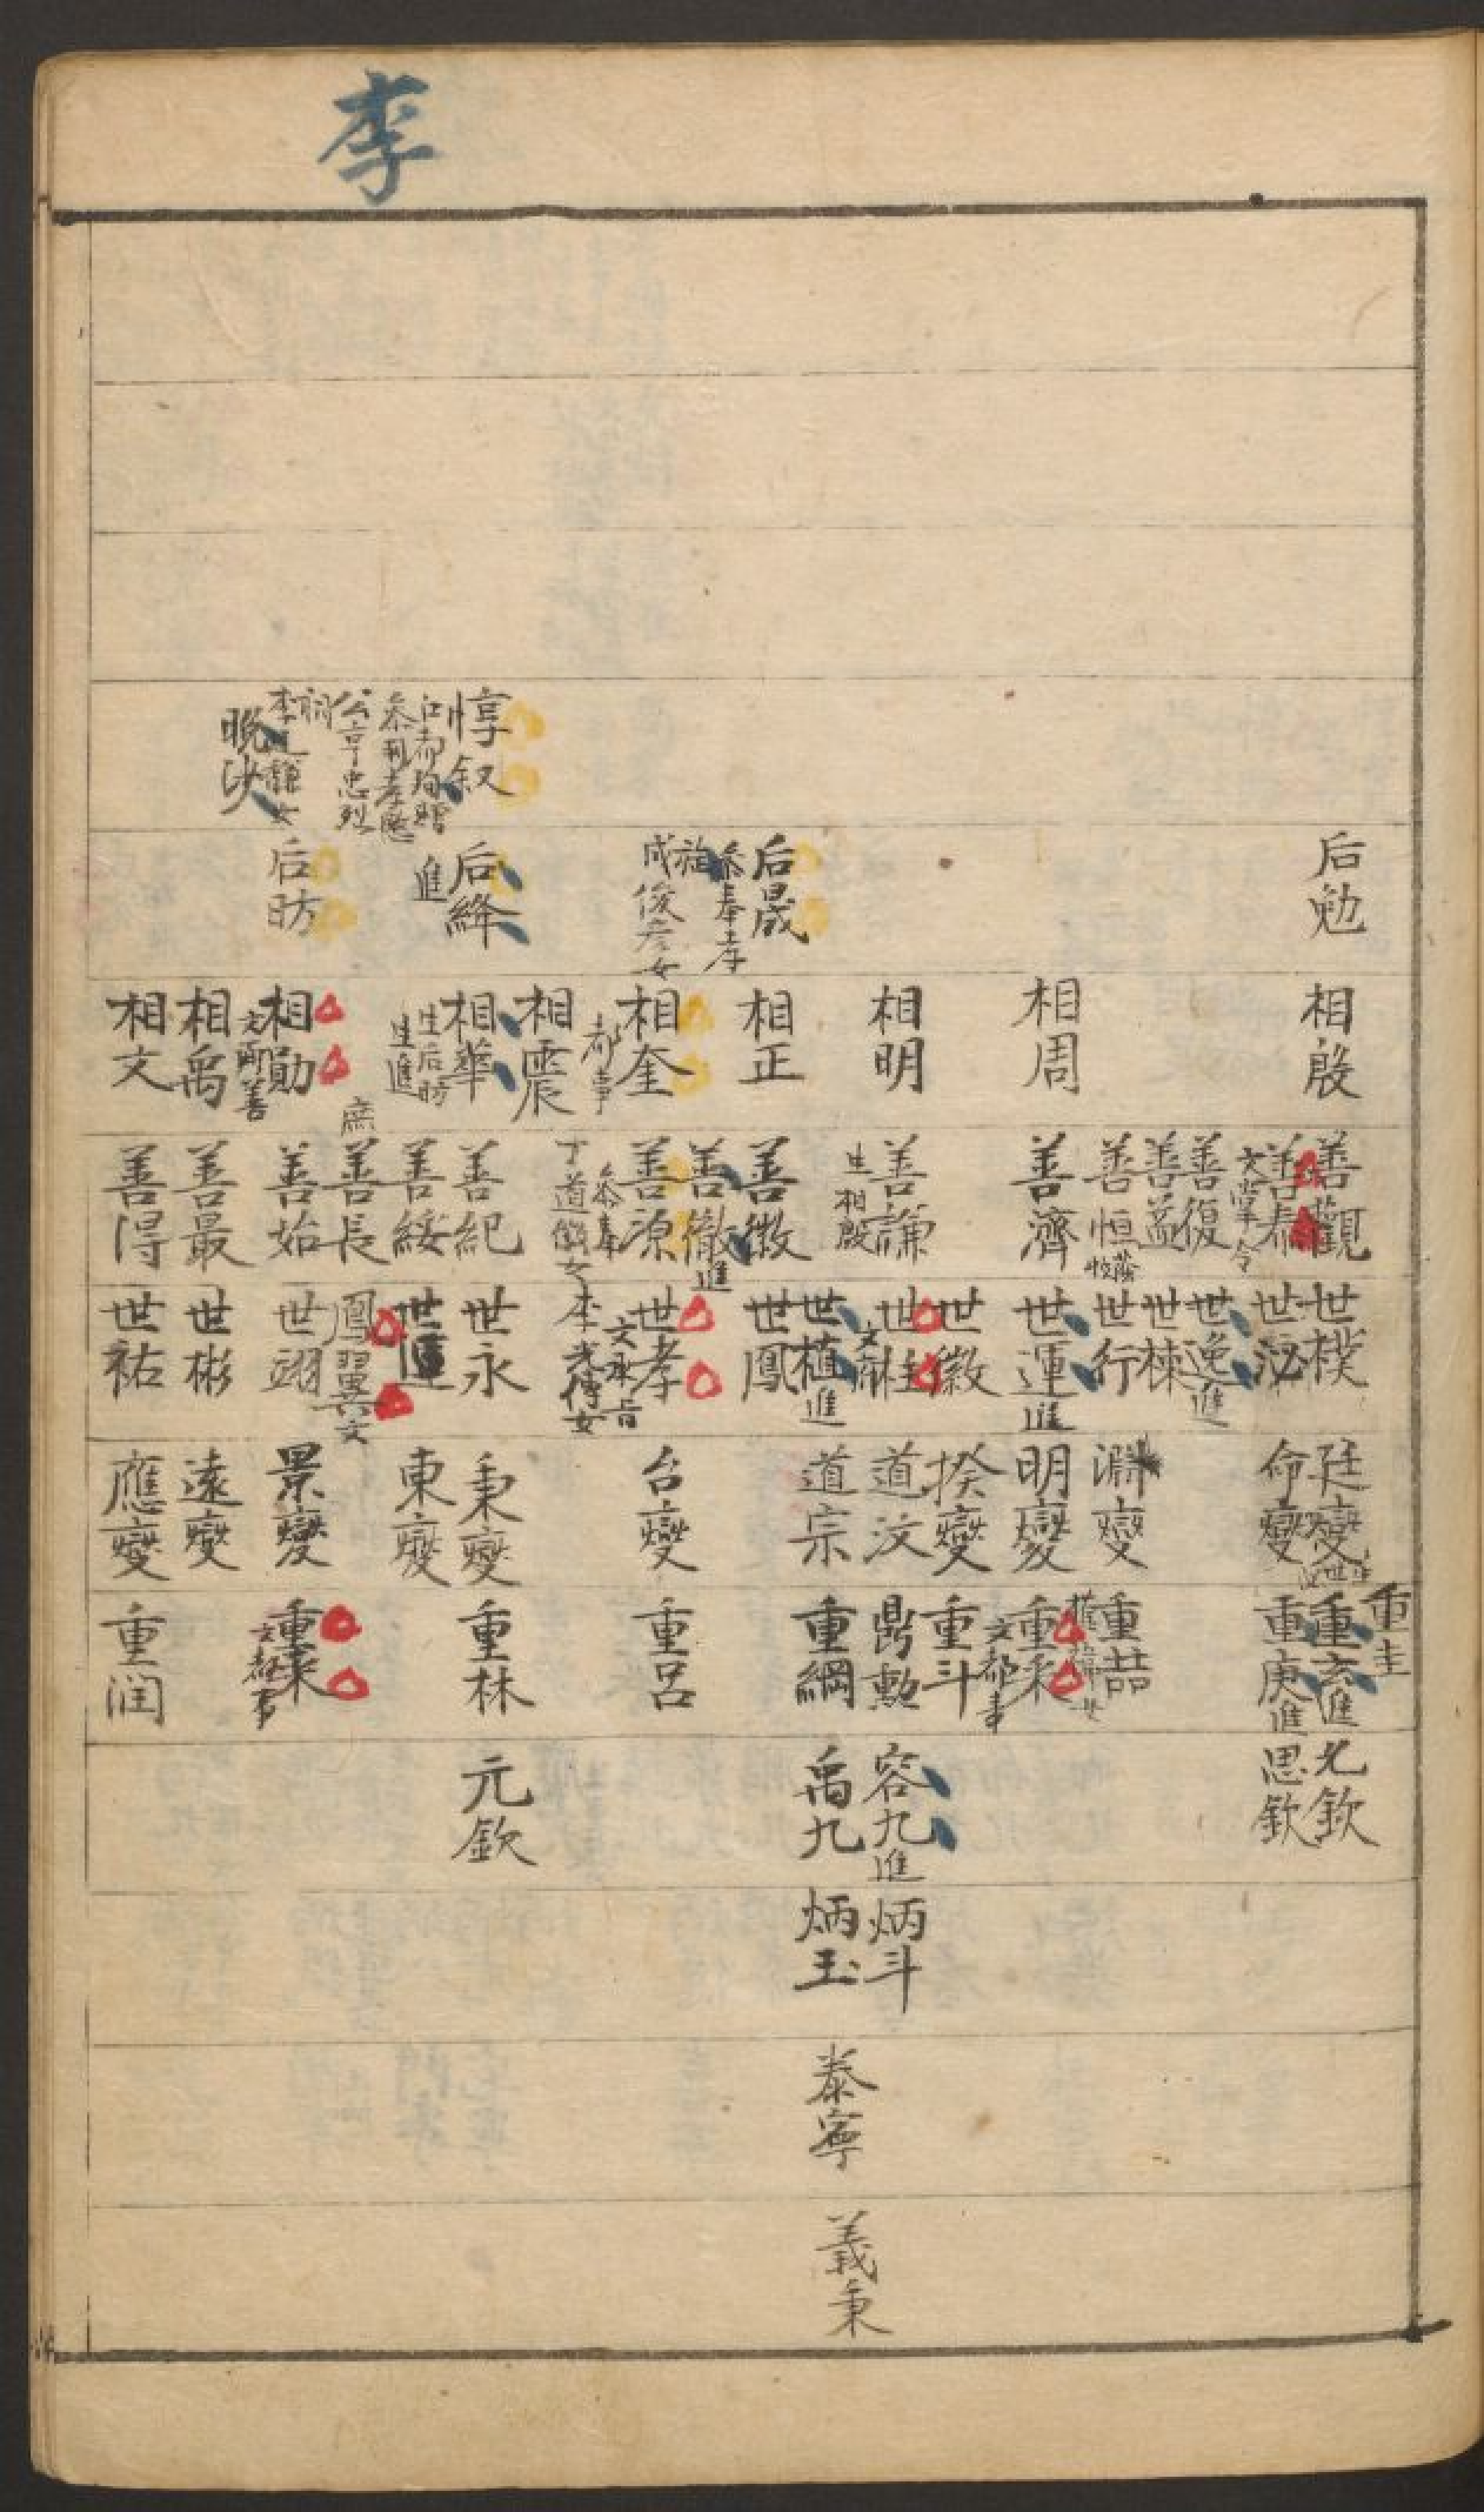 李
惇叙
江都
參判孝
公亨忠烈
嗣
李 謙女
晩
后勉
后晟
參奉孝
成俊彦女
后絳
進
后昉
相殷
相周
相明
相正
相奎
都事
相震
相華
生后昉
生進
相勛
相禹
相文
善觀
善泰
文掌令
善復
善益
善恒
善濟
善謙
生相殷
善徽
善徹進
善源
參奉
丁道徽女
善紀
善綏
庶
善長
善始
善最
善得
世樸
世泌
世逸進
世棟
世行
世運進
世徽
世柱
世植進
世鳳
世孝
文承旨
世永
鳳翼文
世翊
世彬
世祐
廷夔
命夔
淵夔
明夔
揆夔
道汶
道宗
台夔
秉夔
東夔
景夔
遠夔
應夔
重圭
重玄進
重庚進
重喆
重采
文都事
重斗
鼎勳
重綱
重呂
重林
重
文都事
重润
允欽
思欽
容九進
禹九
元欽
炳斗
炳玉
泰寧
義秉